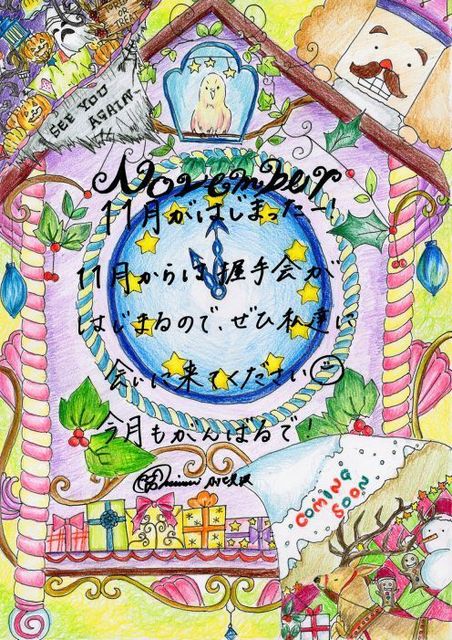 TRICK OR TREAT
SEE YOU
AGAIN
November
11月がはじまったー!
11月からは握手会が
はじまるので、ぜひ私達に
会いに来てください
今月もがんばるで!
COMING
SOON